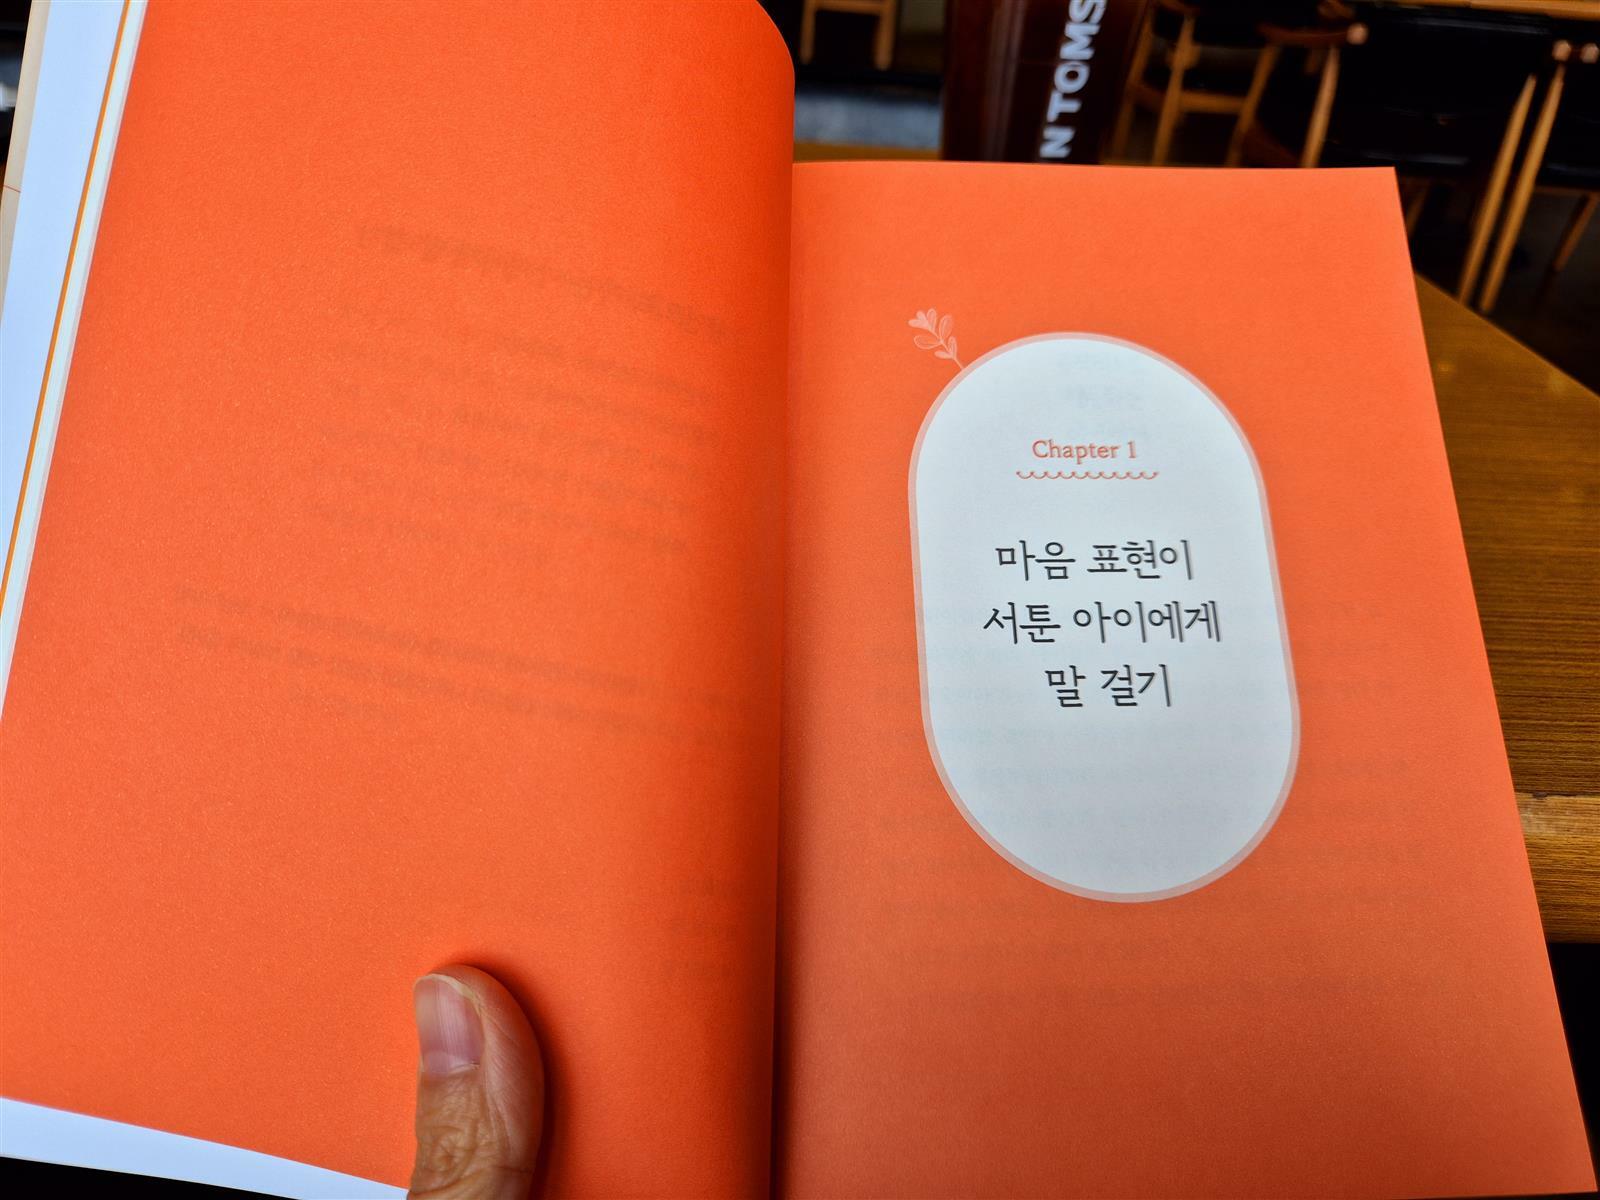 N TOMS
Chapter 1
마음 표현이
서툰 아이에게
말 걸기